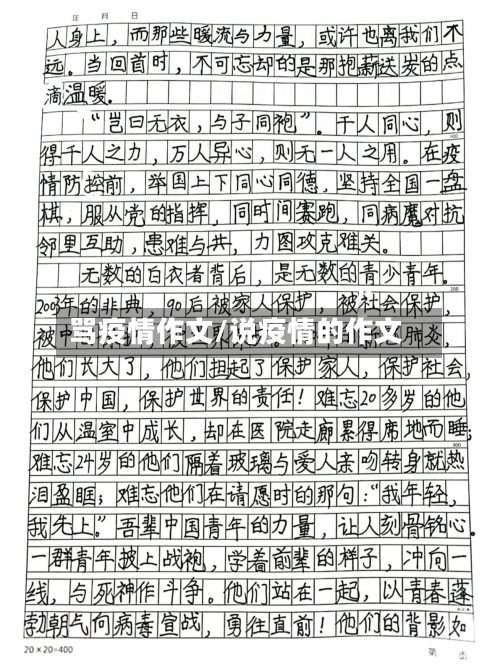 年 月 日
人身上，而那些暖流与力量，或许也离我们不
远。当回首时，不可忘却的是那抱薪送炭的点
滴温暖.
“岂曰无衣，与子同袍”。千人同心，则
100
得千人之力，万人异心，则无一人之用。在疫
情防控前，举国上下同心同德，坚持全国一盘
棋，服从党的指挥，同时间赛跑，同病魔对抗
邻里互助，患难与共，力图攻克难关。
无数的白衣者背后，是无数的青少青年。
200
2003年的非典，90后被家人保护，被社会保护，
被中
骂疫情作文/说疫情的作文
肺炎，
他们长大了，他们担起了保护家人，保护社会，
保护中国，保护世界的责任！难忘20多岁的他
们从温室中成长，却在医院走廊累得席地而睡；
300
难忘24岁的他们隔着玻璃与爱人亲吻转身就热
泪盈眶；难忘他们在请愿时的那句：“我年轻，
我先上。”吾辈中国青年的力量，让人刻骨铭心。
一群青年披上战袍，学着前辈的样子，冲向一
线，与死神作斗争。他们站在一起，以青春蓬
勃朝气向病毒宣战，勇往直前！他们的背影如
20×20=400
第 页